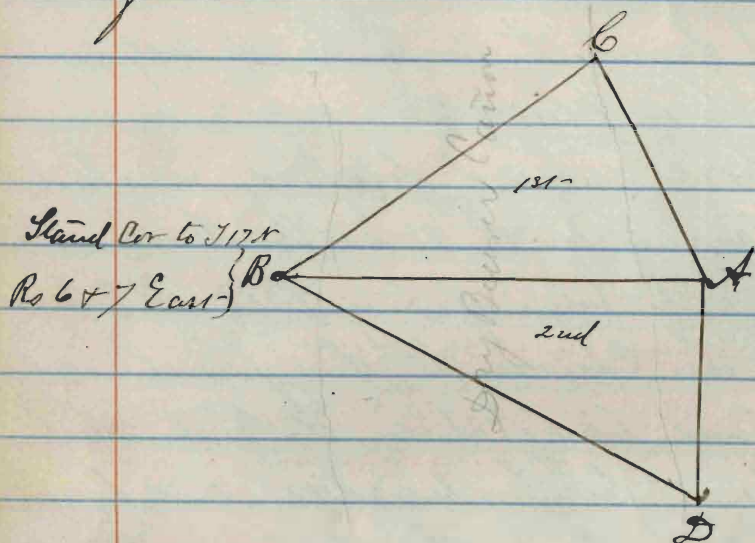 C
1st
Stand Cor to T17N
Rs 6 & 7 East } B
A
2nd
D
Dry Beaver Cañon